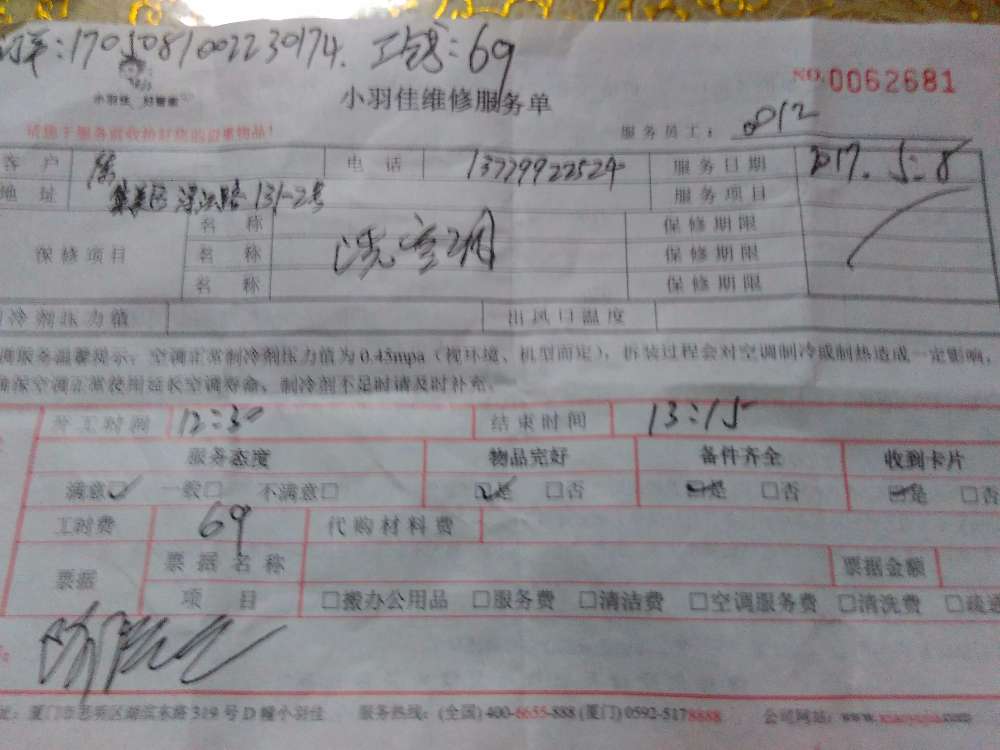 订单:1705081002230174. 工钱:69
小羽佳 好管家
小羽佳维修服务单
NO.0062681
服务员工: 0012
客户 陈 电话 13779922524 服务日期 2017.5.8
地址 集美区 浔江路 131-2号 服务项目
保修项目 名称 洗空调 保修期限
名称 保修期限
名称 保修期限
制冷剂压力值 出风口温度
调服务温馨提示:空调正常制冷剂压力值为0.45mpa(视环境、机型而定),拆装过程会对空调制冷或制热造成一定影响,
确保空调正常使用延长空调寿命,制冷剂不足时请及时补充。
开工时间 12:30 结束时间 13:15
服务态度 物品完好 备件齐全 收到卡片
满意□ 一般□ 不满意□ □是 □否 □是 □否 □是 □否
工时费 69 代购材料费
票据 票据名称 票据金额
项目 □搬办公用品 □服务费 □清洁费 □空调服务费 □清洗费 □疏通
址:厦门市思明区湖滨东路319号D幢小羽佳 服务热线:(全国)400-6655-888(厦门)0592-5178888 公司网站:www.xiaoyujia.com